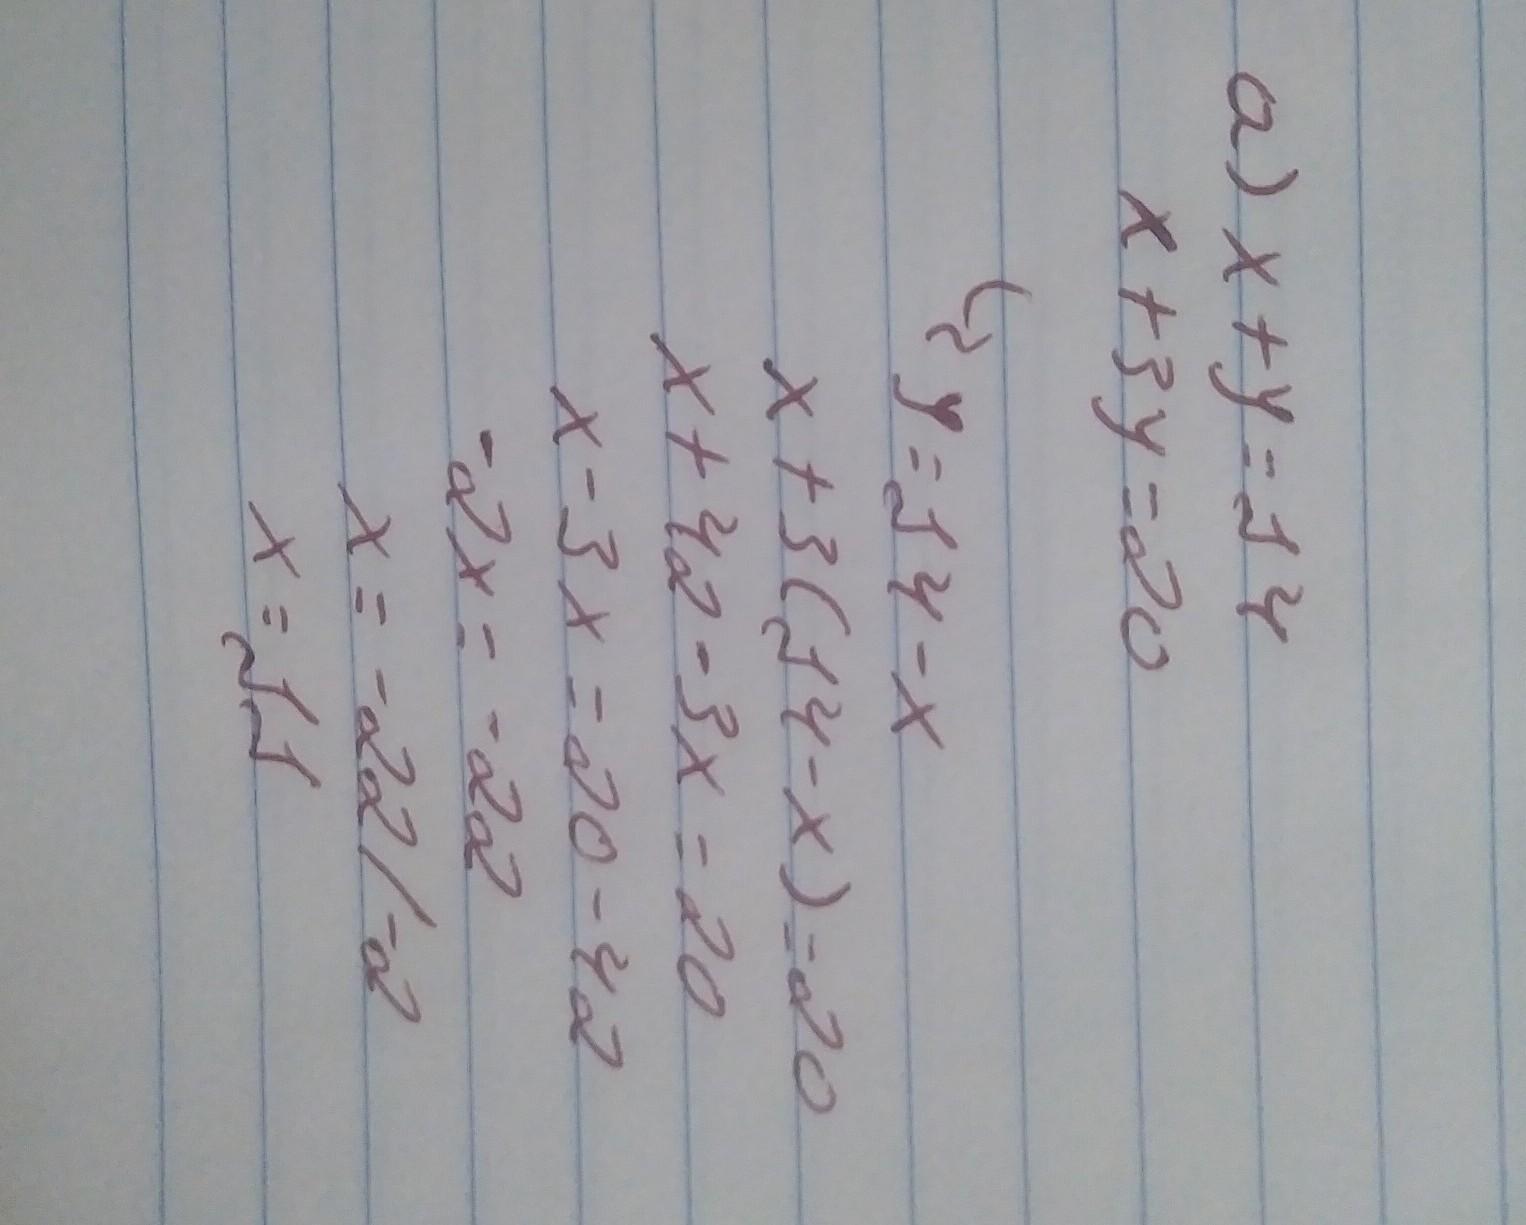 a) x + y = 14
x + 3y = 20
y = 14 - x
x + 3(14 - x) = 20
x + 42 - 3x = 20
x - 3x = 20 - 42
-2x = -22
x = -22/-2
x = 11